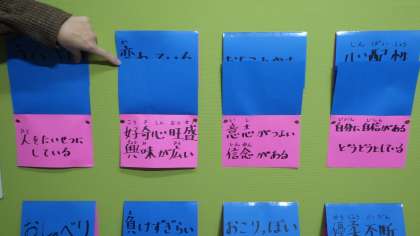 変わっている
心配性
人をたいせつに
している
好奇心旺盛
興味が広い
意志がつよい
信念がある
自分に自信がある
どうどうとしている
おしゃべり
負けずぎらい
おこりっぽい
優柔不断